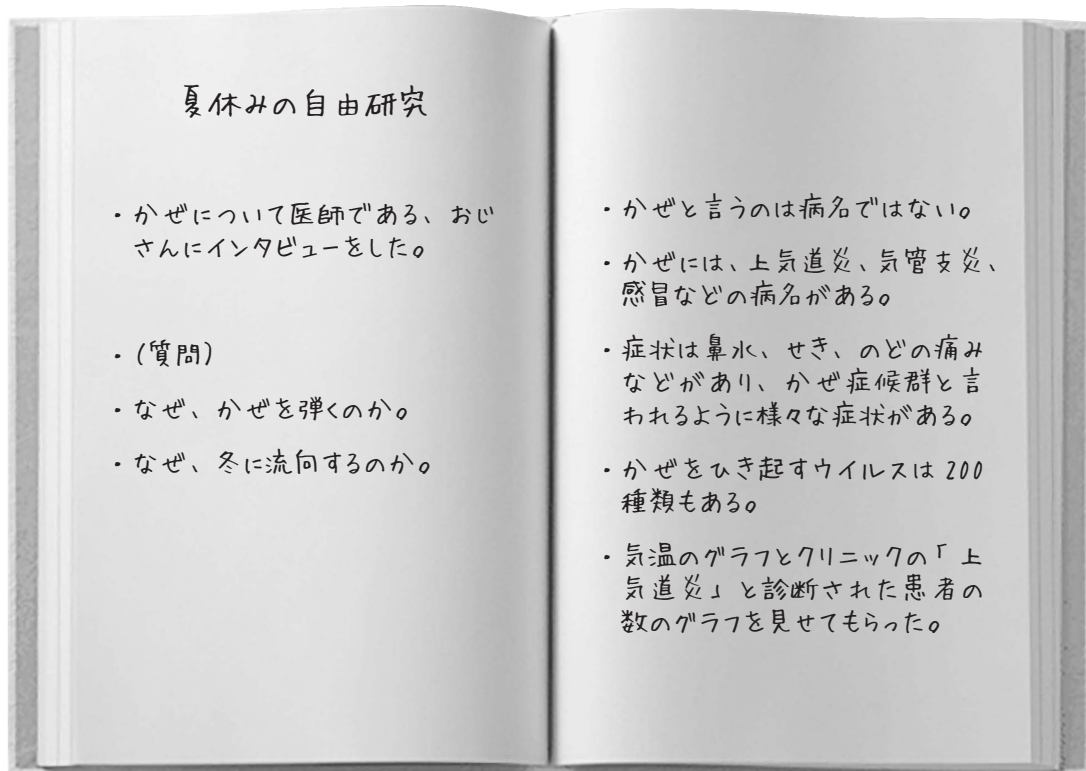 夏休みの自由研究
・かぜについて医師である、おじ
さんにインタビューをした。
・(質問)
・なぜ、かぜを弾くのか。
・なぜ、冬に流向するのか。
・かぜと言うのは病名ではない。
・かぜには、上気道炎、気管支炎、
感冒などの病名がある。
・症状は鼻水、せき、のどの痛み
などがあり、かぜ症候群と言
われるように様々な症状がある。
・かぜをひき起すウイルスは200
種類もある。
・気温のグラフとクリニックの「上
気道炎」と診断された患者の
数のグラフを見せてもらった。